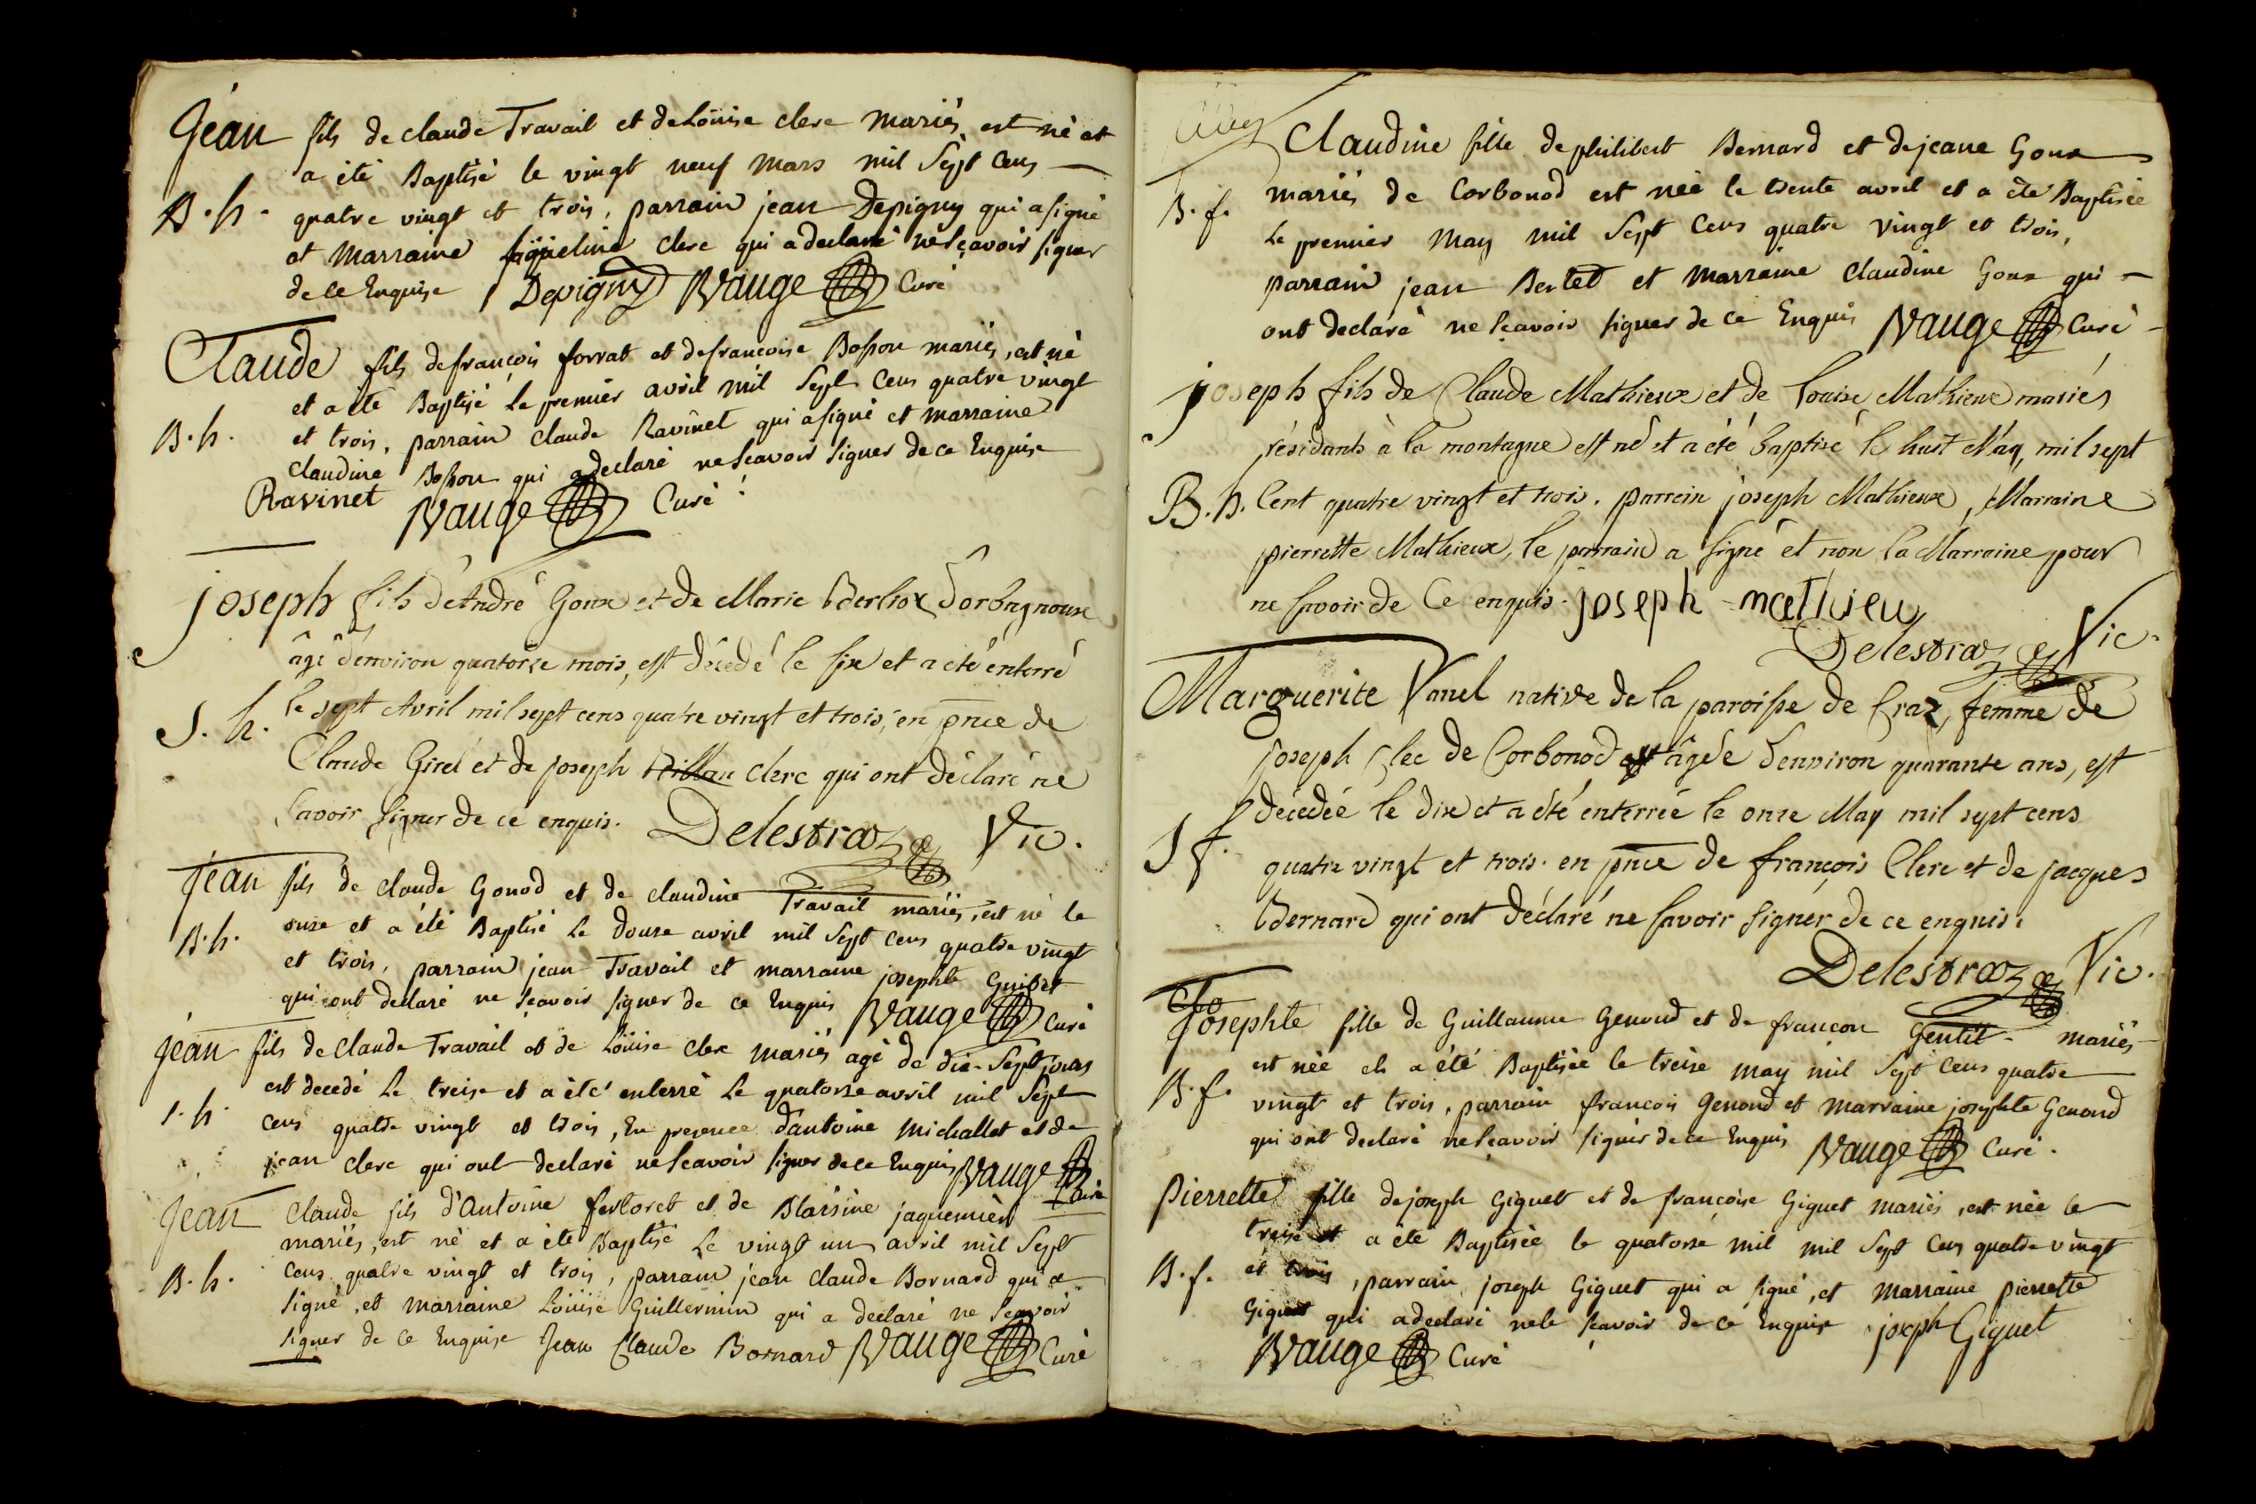 Jean fils de claude Travail et de Loüise clerc mariés est né et
a été Baptisé le vingt neuf mars mil sept cens
B. h. quatre vingt et trois, parrain jean Depigny qui a signé
et marraine jaqueline clerc qui a declaré ne sçavoir signer
de ce Enquise Depigny Vauge Curé
Claude fils de françois forrat et de françoise Bosson mariés, est né
et a été Baptisé le premier avril mil sept cens quatre vingt
B. h. et trois, parrain claude Ravinet qui a signé et marraine
claudine Bosson qui a declaré ne sçavoir signer de ce Enquise
Ravinet Vauge Curé
joseph fils d'André Goux et de Marie Berlioz d'orbagnoux
âgé d'environ quatorze mois, est décedé le six et a été enterré
S. h. le sept Avril mil sept cens quatre vingt et trois, en pnce de
Claude Girel et de joseph clerc qui ont déclaré ne
savoir signer de ce enquis. Delestraz Vic.
Jean fils de claude Gonod et de claudine Travail mariés, est né le
B. h. onze et a été Baptisé le douze avril mil sept cens quatre vingt
et trois, parrain jean Travail et marraine josephte Guibet
qui ont declaré ne sçavoir signer de ce Enquis Vauge Curé
Jean fils de claude Travail et de Loüise clerc mariés agé de dix-sept jours
est decedé le treize et a été enterré le quatorze avril mil sept
s. h. cens quatre vingt et trois, En presence d'antoine michallet et de
jean clerc qui ont declaré ne sçavoir signer de ce Enquis Vauge Curé
Jean claude fils d'Antoine fertoret et de Blaisine jaquemier
mariés, est né et a été Baptisé le vingt un avril mil sept
B. h. cens quatre vingt et trois, parrain jean claude Bornard qui a
signé, et marraine Loüise Guillermin qui a declaré ne sçavoir
signer de ce Enquise Jean Claude Bornard Vauge Curé
Claudine fille de philibert Bernard et de jeane Goux
B. f. mariés de Corbonod est née le trente avril et a été Baptisée
le premier may mil sept cens quatre vingt et trois,
parrain jean Bertet et marraine claudine Goux qui
ont declaré ne sçavoir signer de ce Enquis Vauge Curé
joseph fils de Claude Mathieux et de Louise Mathieux mariés
résidants à la montagne est né et a été baptisé le huit May, mil sept
B. h. Cent quatre vingt et trois. parrein joseph Mathieux, Marraine
pierrette Mathieux, le parrain a signé et non la Marraine pour
ne savoir de Ce enquis. joseph mathieu
Delestraz Vic.
Marguerite Vanel native de la paroisse de Craz, femme de
joseph Clec de Corbonod âgée d'environ quarante ans, est
décedée le dix et a été enterrée le onze May mil sept cens
S f. quatre vingt et trois. en pnce de françois Clerc et de jacques
Bernard qui ont déclaré ne savoir signer de ce enquis.
Delestraz Vic.
Josephte fille de Guillaume Genoud et de françon Gentil mariés
est née et a été Baptisée le treize may mil sept cens quatre
B. f. vingt et trois, parrain françois Genoud et marraine josephte Genoud
qui ont declaré ne sçavoir signer de ce Enquis Vauge Curé.
Pierrette fille de joseph Giguet et de françoise Giguet mariés, est née le
treize et a été Baptisée le quatorze mil mil sept cens quatre vingt
B. f. et trois, parrain joseph Giguet qui a signé, et marraine pierrette
Giguet qui a declaré ne le sçavoir de ce Enquise joseph Giguet
Vauge Curé